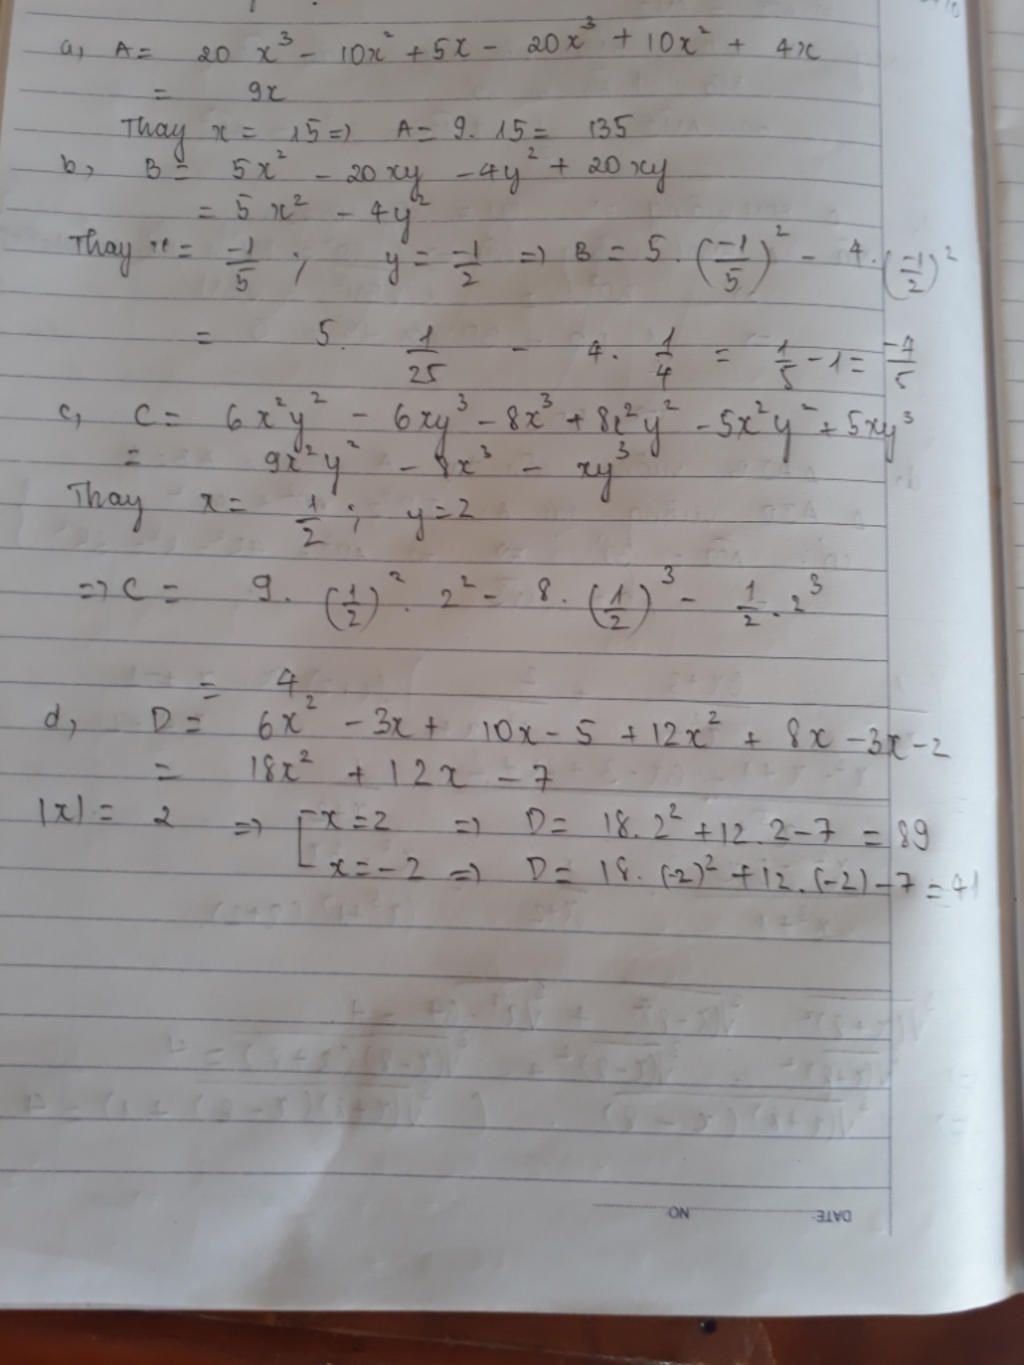 a, A = 20 x³ - 10x² + 5x - 20x³ + 10x² + 4x
= 9x
Thay x = 15 => A = 9. 15 = 135
b, B = 5x² - 20xy - 4y² + 20xy
= 5x² - 4y²
Thay x = -1/5 ; y = -1/2 => B = 5 . (-1/5)² - 4. (-1/2)²
= 5. 1/25 - 4. 1/4 = 1/5 - 1 = -4/5
c, C = 6x²y² - 6xy³ - 8x³ + 8x²y² - 5x²y² + 5xy³
= 9x²y² - 8x³ - xy³
Thay x = 1/2 ; y = 2
=> C = 9. (1/2)² . 2² - 8. (1/2)³ - 1/2 . 2³
= 4
d, D = 6x² - 3x + 10x - 5 + 12x² + 8x - 3x - 2
= 18x² + 12x - 7
|x| = 2 => [ x = 2 => D = 18. 2² + 12. 2 - 7 = 89
x = -2 => D = 18. (-2)² + 12. (-2) - 7 = 41
NO:
DATE: